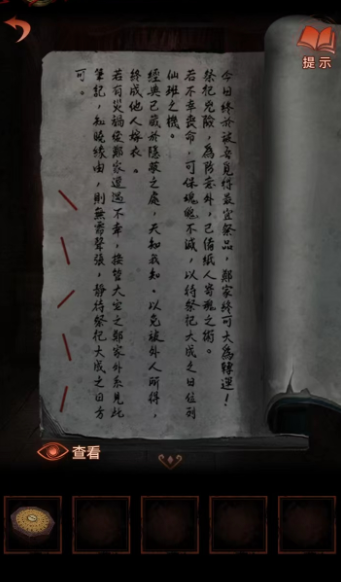 提示
今日終於被吾覓得最宜祭品，鄭家終可大為轉運！
祭祀兇險，為防意外，已備紙人寄魂之術。
若不幸喪命，可保魂魄不滅，以待祭祀大成之日位列
仙班之機。
經典已藏於隱蔽之處，天知我知。以免被外人所得，
終成他人嫁衣。
若有災禍從鄭家遭遇不幸，接管大宅之鄭家外系見此
筆記，知曉緣由，則無需聲張，靜待祭祀大成之日方
可。
查看